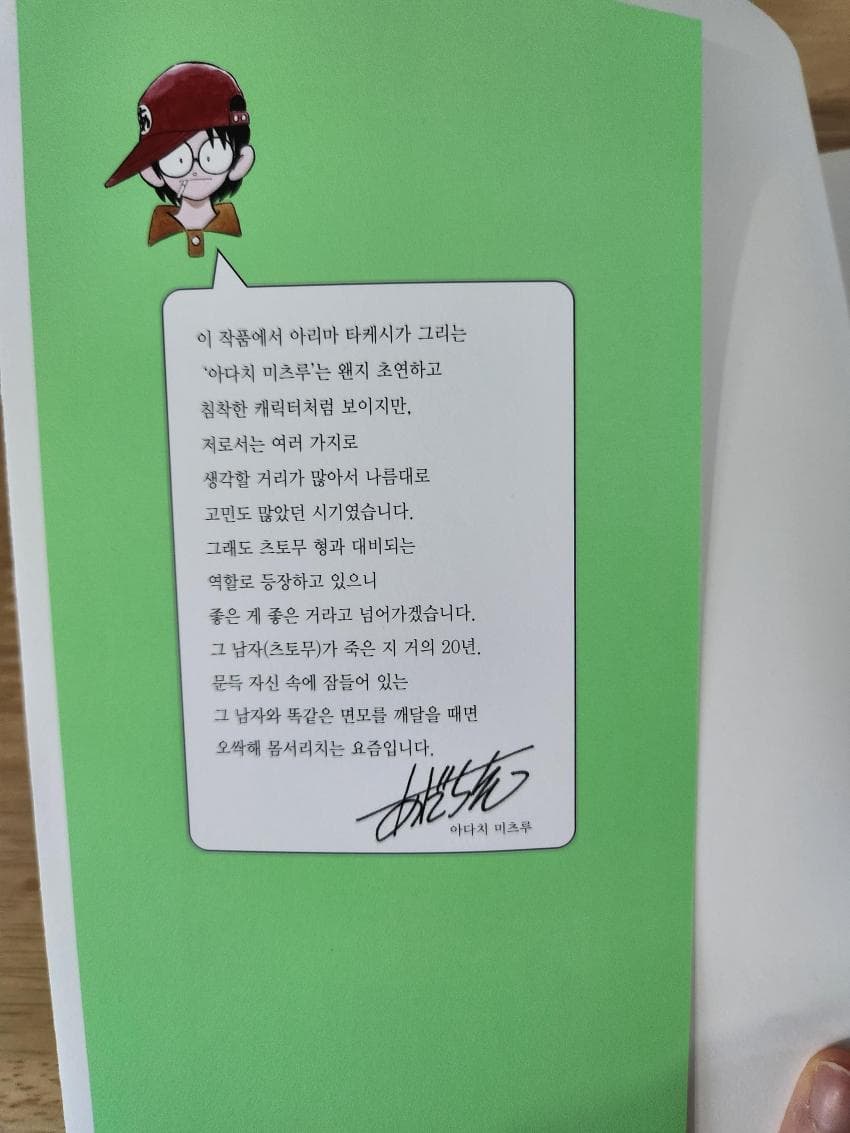 あ
이 작품에서 아리마 타케시가 그리는
‘아다치 미츠루’는 왠지 초연하고
침착한 캐릭터처럼 보이지만,
저로서는 여러 가지로
생각할 거리가 많아서 나름대로
고민도 많았던 시기였습니다.
그래도 츠토무 형과 대비되는
역할로 등장하고 있으니
좋은 게 좋은 거라고 넘어가겠습니다.
그 남자(츠토무)가 죽은 지 거의 20년.
문득 자신 속에 잠들어 있는
그 남자와 똑같은 면모를 깨달을 때면
오싹해 몸서리치는 요즘입니다.
あだち充
아다치 미츠루